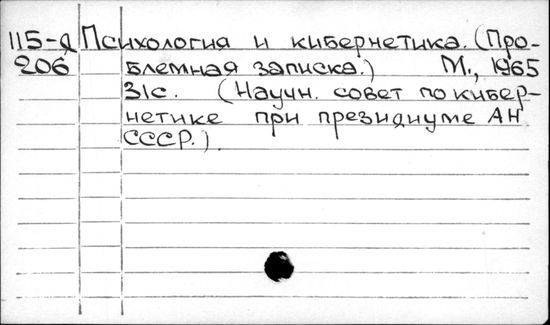 115-д Психология и кибернетика. (Про-
206 блемная записка.) М., 1965
31с. (Научн. совет по кибер-
нетике при президиуме АН
СССР.).